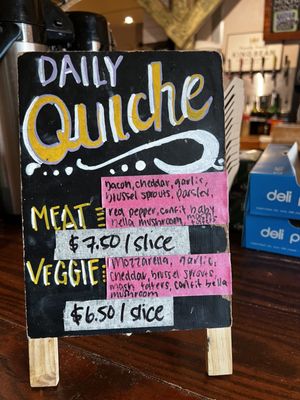 DAILY
Quiche
bacon, cheddar, garlic,
brussel sprouts, parsley,
MEAT
red pepper, confit baby
bella mushroom
$7.50/slice
VEGGIE
mozzarella, garlic,
cheddar, brussel sprouts,
mash taters, confit bella
mushroom
$6.50/slice
deli
deli p